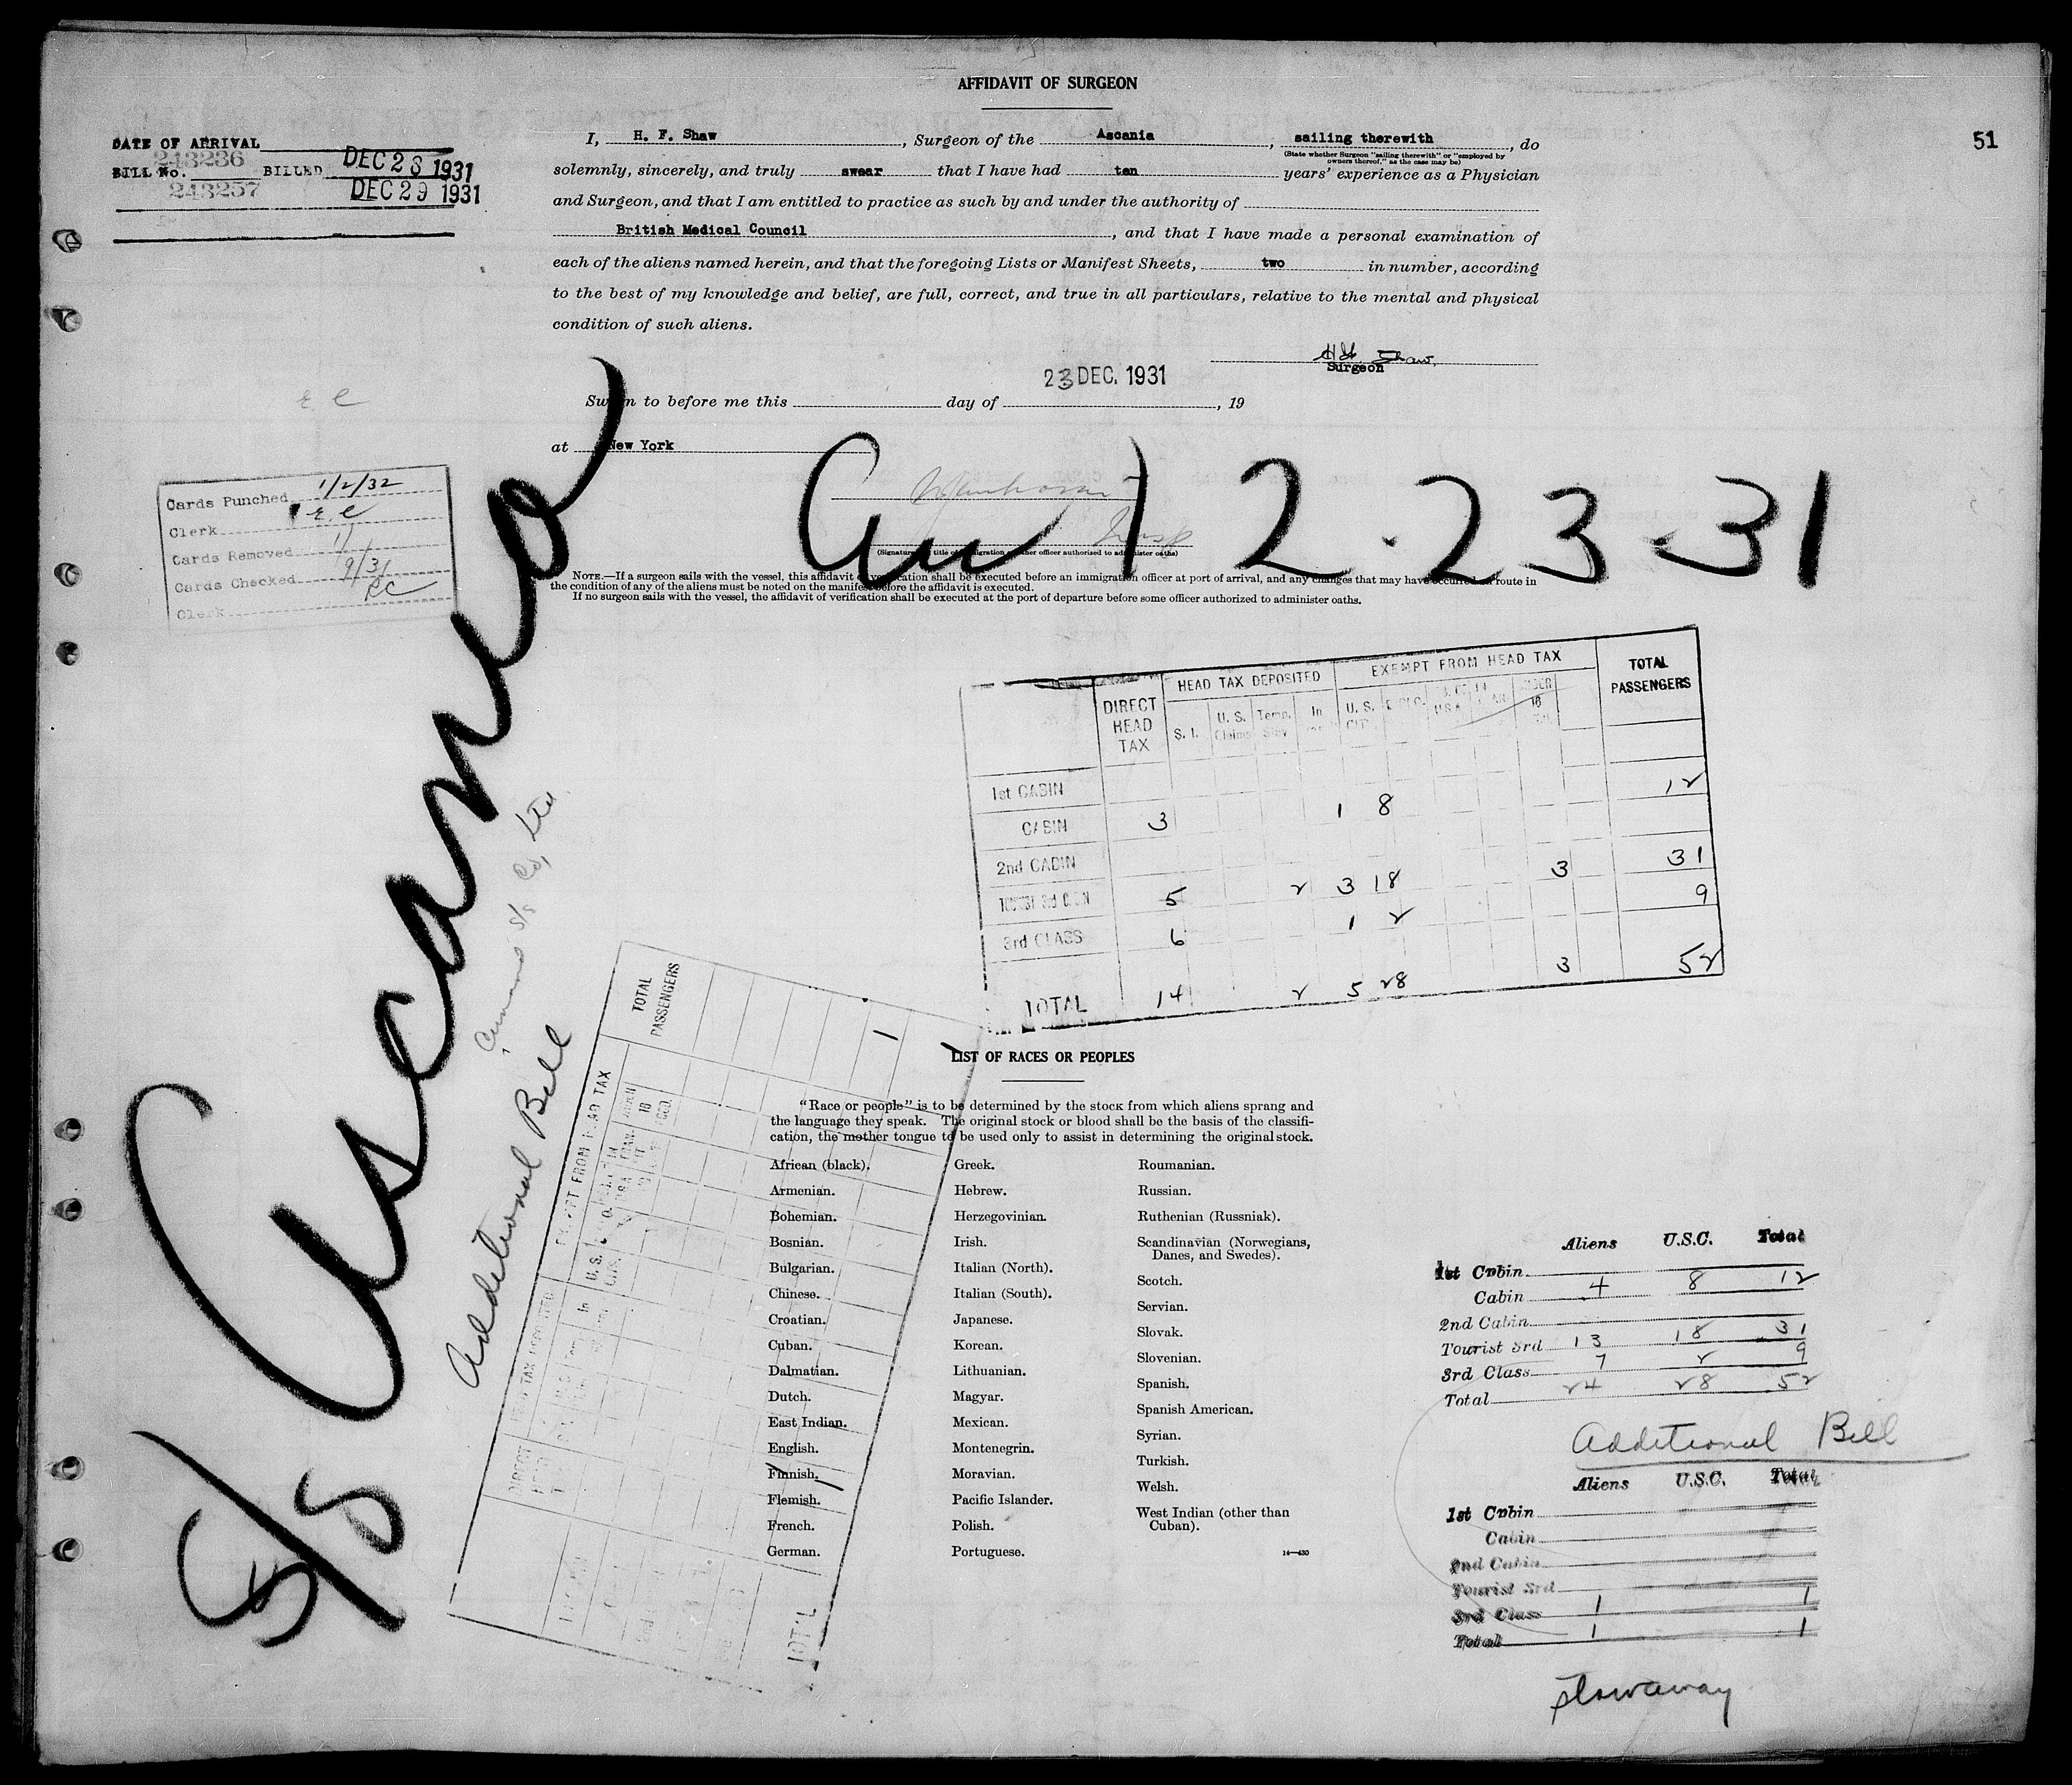 AFFIDAVIT OF SURGEON
51
DATE OF ARRIVAL
243236
BILL No. BILLED DEC 28 1931
243257 DEC 29 1931
I, H. F. Shaw, Surgeon of the Ascania, sailing therewith, do
(State whether Surgeon "sailing therewith" or "employed by
owners thereof," as the case may be)
solemnly, sincerely, and truly swear that I have had ten years' experience as a Physician
and Surgeon, and that I am entitled to practice as such by and under the authority of
British Medical Council, and that I have made a personal examination of
each of the aliens named herein, and that the foregoing Lists or Manifest Sheets, two in number, according
to the best of my knowledge and belief, are full, correct, and true in all particulars, relative to the mental and physical
condition of such aliens.
Shaw
Surgeon
23 DEC. 1931
Sworn to before me this day of , 19
at New York
Arr 12-23-31
Cards Punched 1/2/32
Clerk r. c
Cards Removed
Cards Checked
Clerk
NOTE.—If a surgeon sails with the vessel, this affidavit of verification shall be executed before an immigration officer at port of arrival, and any changes that may have occurred en route in
the condition of any of the aliens must be noted on the manifest before the affidavit is executed.
If no surgeon sails with the vessel, the affidavit of verification shall be executed at the port of departure before some officer authorized to administer oaths.
S/S Ascania
Additional Bill
DIRECT HEAD TAX
HEAD TAX DEPOSITED
EXEMPT FROM HEAD TAX
TOTAL PASSENGERS
S. I. U. S. Claims Temp. Stay In U. S.
1st CABIN
CABIN 3 1 8 12
2nd CABIN
TOURIST 3rd CABIN 5 2 3 18 3 31
3rd CLASS 6 1 2 9
TOTAL 14 2 5 28 3 52
TOTAL PASSENGERS
LIST OF RACES OR PEOPLES
"Race or people" is to be determined by the stock from which aliens sprang and
the language they speak. The original stock or blood shall be the basis of the classifi-
cation, the mother tongue to be used only to assist in determining the original stock.
African (black).
Armenian.
Bohemian.
Bosnian.
Bulgarian.
Chinese.
Croatian.
Cuban.
Dalmatian.
Dutch.
East Indian.
English.
Finnish.
Flemish.
French.
German.
Greek.
Hebrew.
Herzegovinian.
Irish.
Italian (North).
Italian (South).
Japanese.
Korean.
Lithuanian.
Magyar.
Mexican.
Montenegrin.
Moravian.
Pacific Islander.
Polish.
Portuguese.
Roumanian.
Russian.
Ruthenian (Russniak).
Scandinavian (Norwegians,
Danes, and Swedes).
Scotch.
Servian.
Slovak.
Slovenian.
Spanish.
Spanish American.
Syrian.
Turkish.
Welsh.
West Indian (other than
Cuban).
14—430
Aliens U.S.C. Total
1st Cabin
Cabin 4 8 12
2nd Cabin
Tourist 3rd 13 18 31
3rd Class 7 2 9
Total 24 28 52
Additional Bill
Aliens U.S.C. Total
1st Cabin
Cabin
2nd Cabin
Tourist 3rd
3rd Class 1 1
Total 1 1
Stowaway